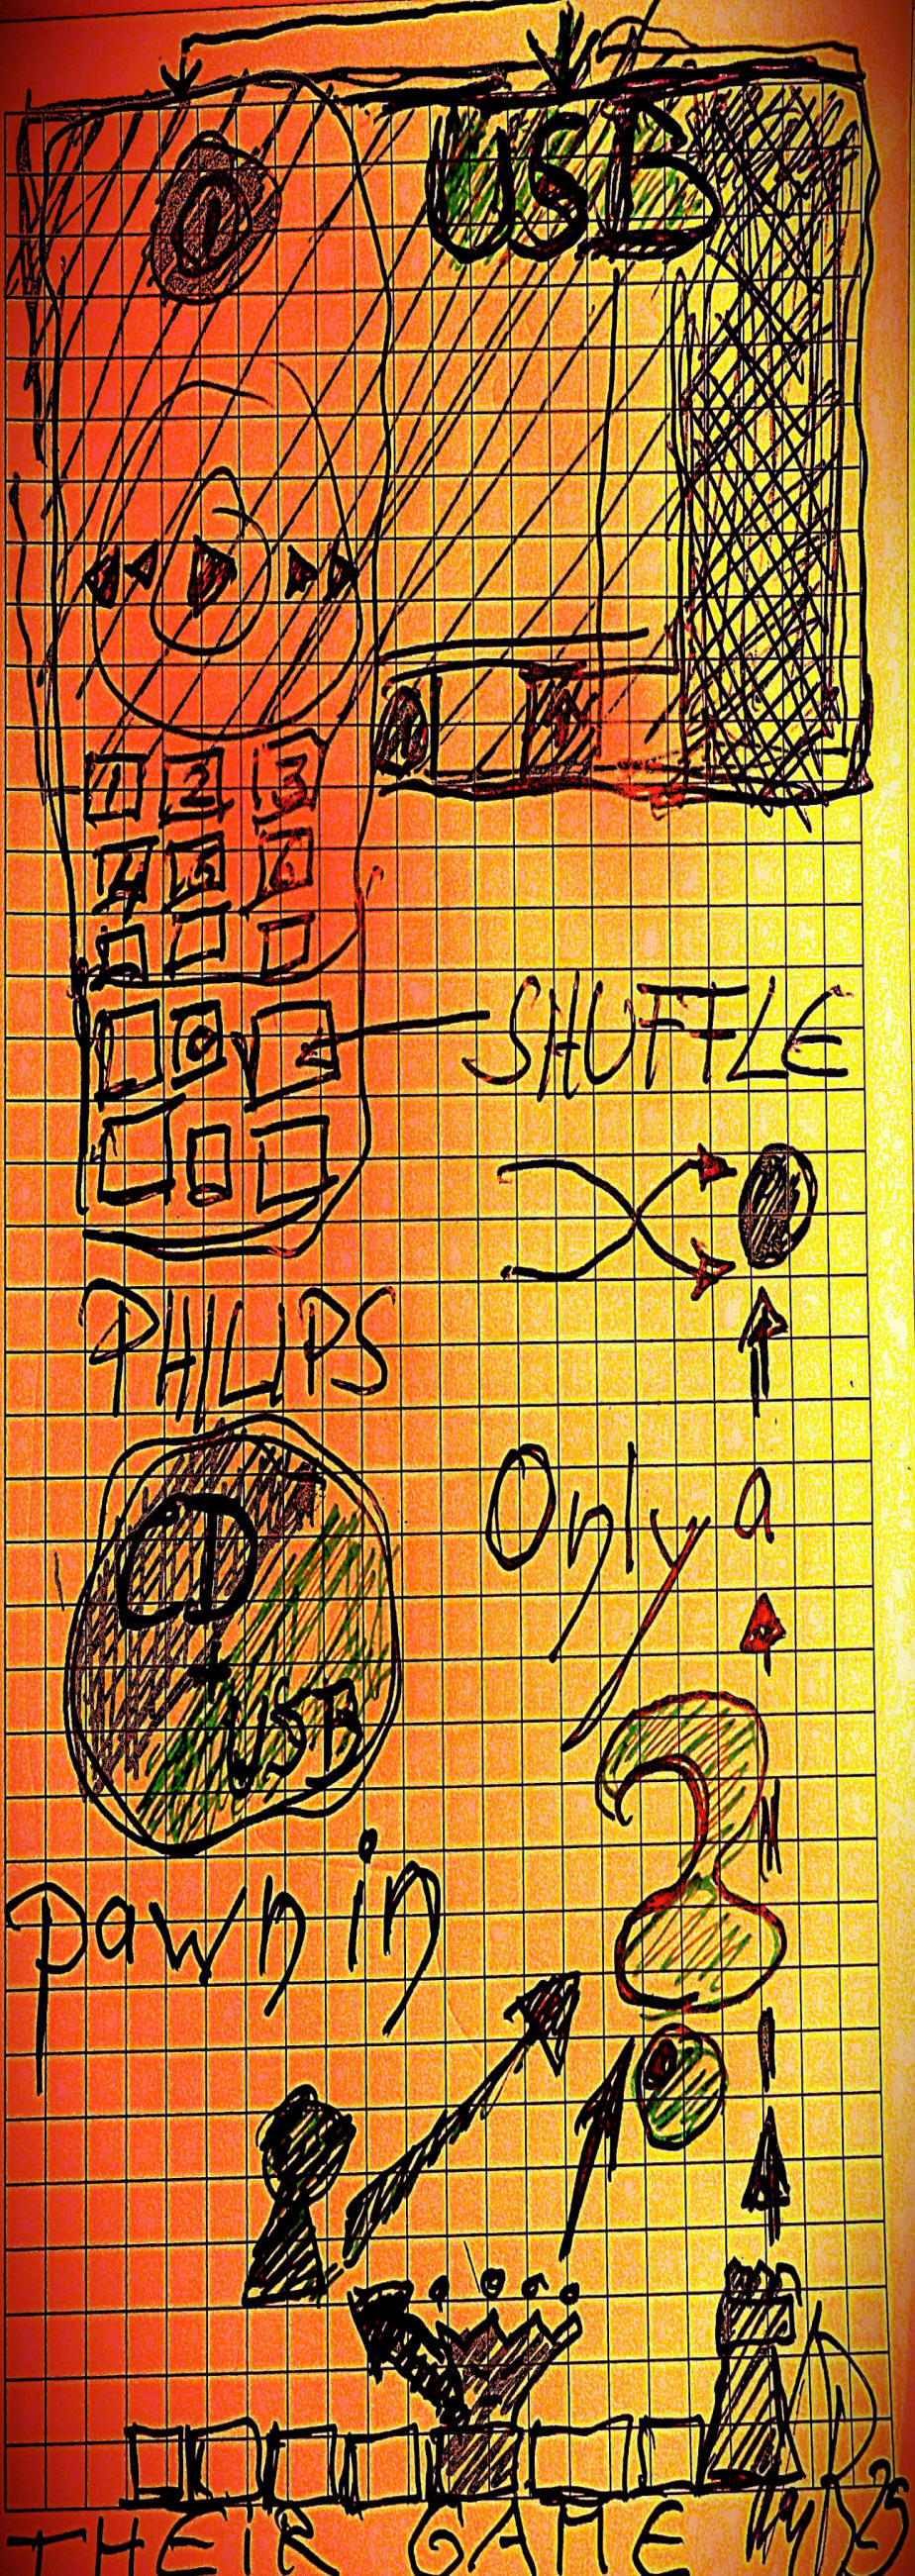 USB
1 2 3
4 5 6
SHUFFLE
0
PHILIPS
Only a
CD
+
USB
pawn in
THEIR GAME by